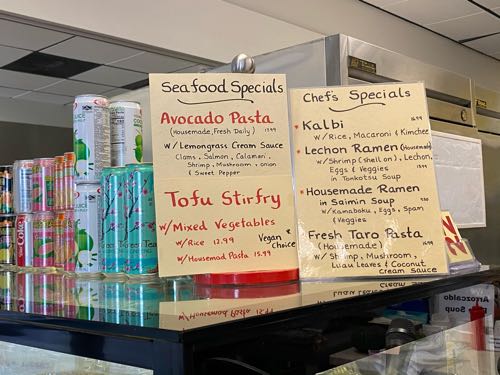 Seafood Specials
Avocado Pasta
(Housemade, Fresh Daily)
W/ Lemongrass Cream Sauce
Clams, Salmon, Calamari,
Shrimp, Mushroom, onion
& Sweet Pepper
Tofu Stirfry
w/Mixed Vegetables
w/Rice 12.99
Vegan
Choice
w/Housemad Pasta 15.99
Chef's Specials
* Kalbi
w/Rice, Macaroni & Kimchee
* Lechon Ramen (Housemade)
w/Shrimp (shell on), Lechon,
Eggs & Veggies
in Tonkatsu Soup
* Housemade Ramen
in Saimin Soup
w/Kamaboku, Eggs, Spam
& Veggies
Fresh Taro Pasta
(Housemade)
w/Shrimp, Mushroom,
Luau Leaves & Coconut
Cream Sauce
Coke
Arrozcaldo